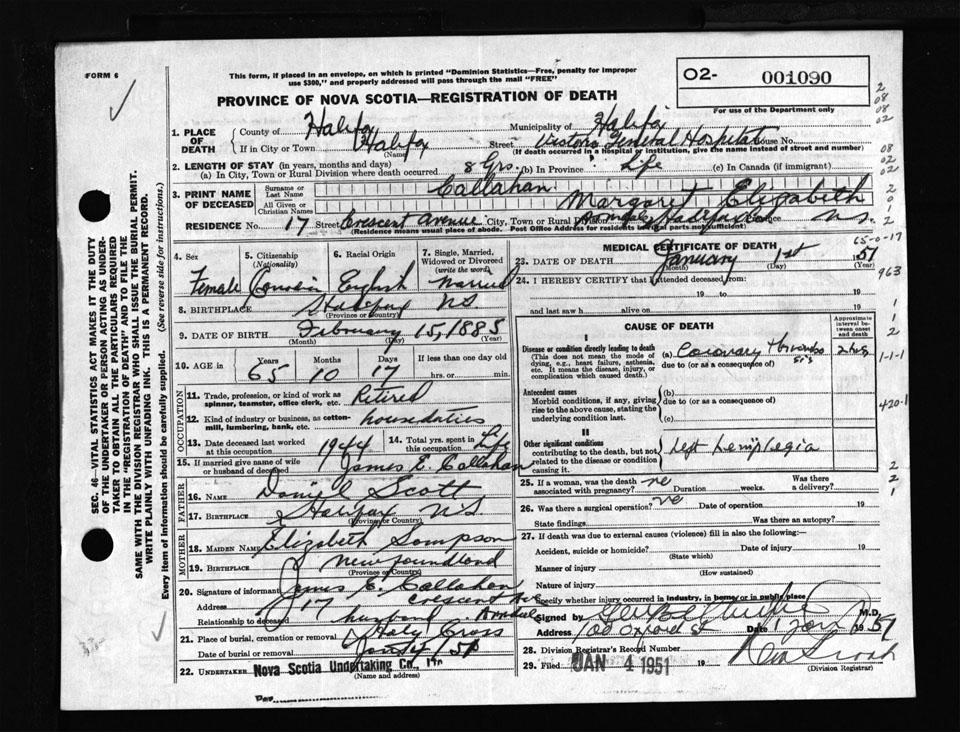 FORM 6
This form, if placed in an envelope, on which is printed "Dominion Statistics—Free, penalty for improper
use $300," and properly addressed will pass through the mail "FREE"
O2- 001090
PROVINCE OF NOVA SCOTIA—REGISTRATION OF DEATH
For use of the Department only
1. PLACE OF DEATH
County of Halifax Municipality of Halifax
If in City or Town Halifax (Name) Street Victoria General Hospital House No.
(If death occurred in a hospital or institution, give the name instead of street and number)
2. LENGTH OF STAY (in years, months and days)
(a) In City, Town or Rural Division where death occurred 8 yrs. (b) In Province Life (c) In Canada (if immigrant)
3. PRINT NAME OF DECEASED
Surname or Last Name Callahan
All Given or Christian Names Margaret Elizabeth
RESIDENCE No. 17 Street Crescent Avenue City, Town or Rural Armdale Halifax N.S.
(Residence means usual place of abode. Post Office Address for residents in rural parts not sufficient)
4. Sex Female
5. Citizenship (Nationality) Canadian
6. Racial Origin English
7. Single, Married, Widowed or Divorced (write the word) Married
8. BIRTHPLACE Halifax NS (Province or Country)
9. DATE OF BIRTH February 15, 1885
(Month) (Day) (Year)
10. AGE in Years Months Days If less than one day old
65 10 17 hrs. or min.
OCCUPATION
11. Trade, profession, or kind of work as spinner, teamster, office clerk, etc. Retired
12. Kind of industry or business, as cotton-mill, lumbering, bank, etc. house duties
13. Date deceased last worked at this occupation 1944
14. Total yrs. spent in this occupation Life
15. If married give name of wife or husband of deceased James E. Callahan
FATHER
16. NAME Daniel Scott
17. BIRTHPLACE Halifax NS (Province or Country)
MOTHER
18. MAIDEN NAME Elizabeth Sampson
19. BIRTHPLACE Newfoundland (Province or Country)
20. Signature of informant James E. Callahan
Address 17 Crescent Ave
Relationship to deceased husband Armdale
21. Place of burial, cremation or removal Holy Cross
Date of burial or removal
22. UNDERTAKER Nova Scotia Undertaking Co., Ltd
(Name and address)
Per
MEDICAL CERTIFICATE OF DEATH
23. DATE OF DEATH January 1st 1951
(Month) (Day) (Year)
24. I HEREBY CERTIFY that I attended deceased from:
19 to 19
and last saw h alive on 19
CAUSE OF DEATH
Approximate interval between onset and death
I
Disease or condition directly leading to death
(This does not mean the mode of dying, e.g., heart failure, asthenia, etc. It means the disease, injury, or complication which caused death.)
(a) Coronary Thrombosis 2 hrs
due to (or as a consequence of)
Antecedent causes
Morbid conditions, if any, giving rise to the above cause, stating the underlying condition last.
(b)
due to (or as a consequence of)
(c)
II
Other significant conditions contributing to the death, but not related to the disease or condition causing it.
Left Hemiplegia
25. If a woman, was the death associated with pregnancy? no Duration weeks. Was there a delivery?
26. Was there a surgical operation? no Date of operation 19
State findings Was there an autopsy?
27. If death was due to external causes (violence) fill in also the following:—
Accident, suicide or homicide? Date of injury 19
(State which)
Manner of injury
(How sustained)
Nature of injury
Specify whether injury occurred in industry, in home or in public place
Signed by M.D.
Address 100 Oxford St Date 1 Jan 1951
28. Division Registrar's Record Number
29. Filed JAN 4 1951 19
(Division Registrar)
SEC. 46—VITAL STATISTICS ACT MAKES IT THE DUTY
OF THE UNDERTAKER OR PERSON ACTING AS UNDER-
TAKER TO OBTAIN ALL THE PARTICULARS REQUIRED
IN THE "REGISTRATION OF DEATH" AND TO FILE THE
SAME WITH THE DIVISION REGISTRAR WHO SHALL ISSUE THE BURIAL PERMIT.
WRITE PLAINLY WITH UNFADING INK. THIS IS A PERMANENT RECORD.
Every item of information should be carefully supplied. (See reverse side for instructions.)
2
08
08
02
08
02
02
2
0
1
2
65-0-17
963
1
1
2
1-1-1
420-1
2
2
1